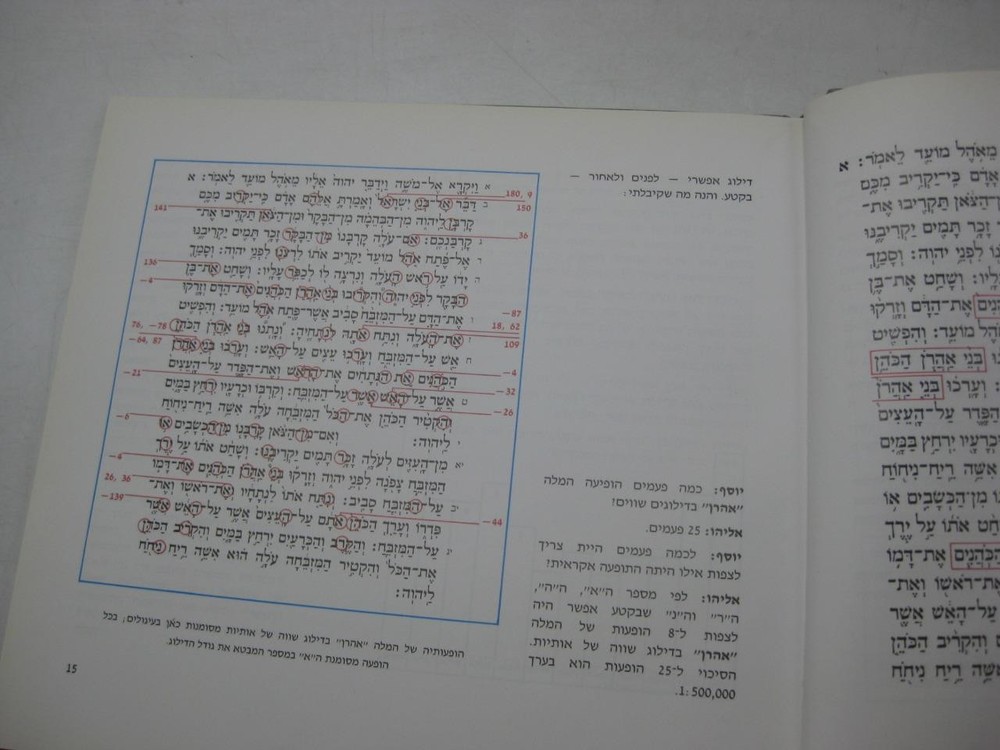 דילוג אפשרי — לפנים ולאחור —
בקטע. והנה מה שקיבלתי:
וַיִּקְרָא אֶל־מֹשֶׁה וַיְדַבֵּר יהוה אֵלָיו מֵאֹהֶל מוֹעֵד לֵאמֹר: א
דַּבֵּר אֶל־בְּנֵי יִשְׂרָאֵל וְאָמַרְתָּ אֲלֵהֶם אָדָם כִּי־יַקְרִיב מִכֶּם
קָרְבָּן לַיהוה מִן־הַבְּהֵמָה מִן־הַבָּקָר וּמִן־הַצֹּאן תַּקְרִיבוּ אֶת־
קָרְבַּנְכֶם: אִם־עֹלָה קָרְבָּנוֹ מִן־הַבָּקָר זָכָר תָּמִים יַקְרִיבֶנּוּ
אֶל־פֶּתַח אֹהֶל מוֹעֵד יַקְרִיב אֹתוֹ לִרְצֹנוֹ לִפְנֵי יהוה: וְסָמַךְ
יָדוֹ עַל רֹאשׁ הָעֹלָה וְנִרְצָה לוֹ לְכַפֵּר עָלָיו: וְשָׁחַט אֶת־בֶּן
הַבָּקָר לִפְנֵי יהוה וְהִקְרִיבוּ בְּנֵי אַהֲרֹן הַכֹּהֲנִים אֶת־הַדָּם וְזָרְקוּ
אֶת־הַדָּם עַל־הַמִּזְבֵּחַ סָבִיב אֲשֶׁר־פֶּתַח אֹהֶל מוֹעֵד: וְהִפְשִׁיט
אֶת־הָעֹלָה וְנִתַּח אֹתָהּ לִנְתָחֶיהָ: וְנָתְנוּ בְּנֵי אַהֲרֹן הַכֹּהֵן
אֵשׁ עַל־הַמִּזְבֵּחַ וְעָרְכוּ עֵצִים עַל־הָאֵשׁ: וְעָרְכוּ בְּנֵי אַהֲרֹן
הַכֹּהֲנִים אֵת הַנְּתָחִים אֶת־הָרֹאשׁ וְאֶת־הַפָּדֶר עַל־הָעֵצִים
אֲשֶׁר עַל־הָאֵשׁ אֲשֶׁר עַל־הַמִּזְבֵּחַ: וְקִרְבּוֹ וּכְרָעָיו יִרְחַץ בַּמָּיִם
וְהִקְטִיר הַכֹּהֵן אֶת־הַכֹּל הַמִּזְבֵּחָה עֹלָה אִשֵּׁה רֵיחַ־נִיחוֹחַ
לַיהוה: וְאִם־מִן־הַצֹּאן קָרְבָּנוֹ מִן־הַכְּשָׂבִים אוֹ
מִן־הָעִזִּים לְעֹלָה זָכָר תָּמִים יַקְרִיבֶנּוּ: וְשָׁחַט אֹתוֹ עַל יֶרֶךְ
הַמִּזְבֵּחַ צָפֹנָה לִפְנֵי יהוה וְזָרְקוּ בְּנֵי אַהֲרֹן הַכֹּהֲנִים אֶת־דָּמוֹ
עַל־הַמִּזְבֵּחַ סָבִיב: וְנִתַּח אֹתוֹ לִנְתָחָיו וְאֶת־רֹאשׁוֹ וְאֶת־
פִּדְרוֹ וְעָרַךְ הַכֹּהֵן אֹתָם עַל־הָעֵצִים אֲשֶׁר עַל־הָאֵשׁ אֲשֶׁר
עַל־הַמִּזְבֵּחַ: וְהַקֶּרֶב וְהַכְּרָעַיִם יִרְחַץ בַּמָּיִם וְהִקְרִיב הַכֹּהֵן
אֶת־הַכֹּל וְהִקְטִיר הַמִּזְבֵּחָה עֹלָה הוּא אִשֵּׁה רֵיחַ נִיחֹחַ
לַיהוה:
180, 9
150
141
36
136
−4
−87
18, 62
76, −78
109
−64, 87
−4
−21
−32
−26
−6
−4
26, 36
−139
−44
הופעותיה של המלה "אהרן" בדילוג שווה של אותיות מסומנות כאן בעיגולים; בכל
הופעה מסומנת ה"א" במספר המבטא את גודל הדילוג.
יוסף: כמה פעמים הופיעה המלה
"אהרן" בדילוגים שווים?
אליהו: 25 פעמים.
יוסף: לכמה פעמים היית צריך
לצפות אילו היתה התופעה אקראית?
אליהו: לפי מספר ה"א", ה"ה",
ה"ר" וה"נ" שבקטע אפשר היה
לצפות ל־8 הופעות של המלה
"אהרן" בדילוג שווה של אותיות.
הסיכוי ל־25 הופעות הוא בערך
1:500,000.
15
מֵאֹהֶל מוֹעֵד לֵאמֹר: א
אָדָם כִּי־יַקְרִיב מִכֶּם
הַצֹּאן תַּקְרִיבוּ אֶת־
זָכָר תָּמִים יַקְרִיבֶנּוּ
לִפְנֵי יהוה: וְסָמַךְ
עָלָיו: וְשָׁחַט אֶת־בֶּן
אֶת־הַדָּם וְזָרְקוּ
אֹהֶל מוֹעֵד: וְהִפְשִׁיט
בְּנֵי אַהֲרֹן הַכֹּהֵן
וְעָרְכוּ בְּנֵי אַהֲרֹן
הַפָּדֶר עַל־הָעֵצִים
וּכְרָעָיו יִרְחַץ בַּמָּיִם
אִשֵּׁה רֵיחַ־נִיחוֹחַ
מִן־הַכְּשָׂבִים אוֹ
אֹתוֹ עַל יֶרֶךְ
הַכֹּהֲנִים אֶת־דָּמוֹ
וְאֶת־
עַל־הָאֵשׁ אֲשֶׁר
וְהִקְרִיב הַכֹּהֵן
רֵיחַ נִיחֹחַ